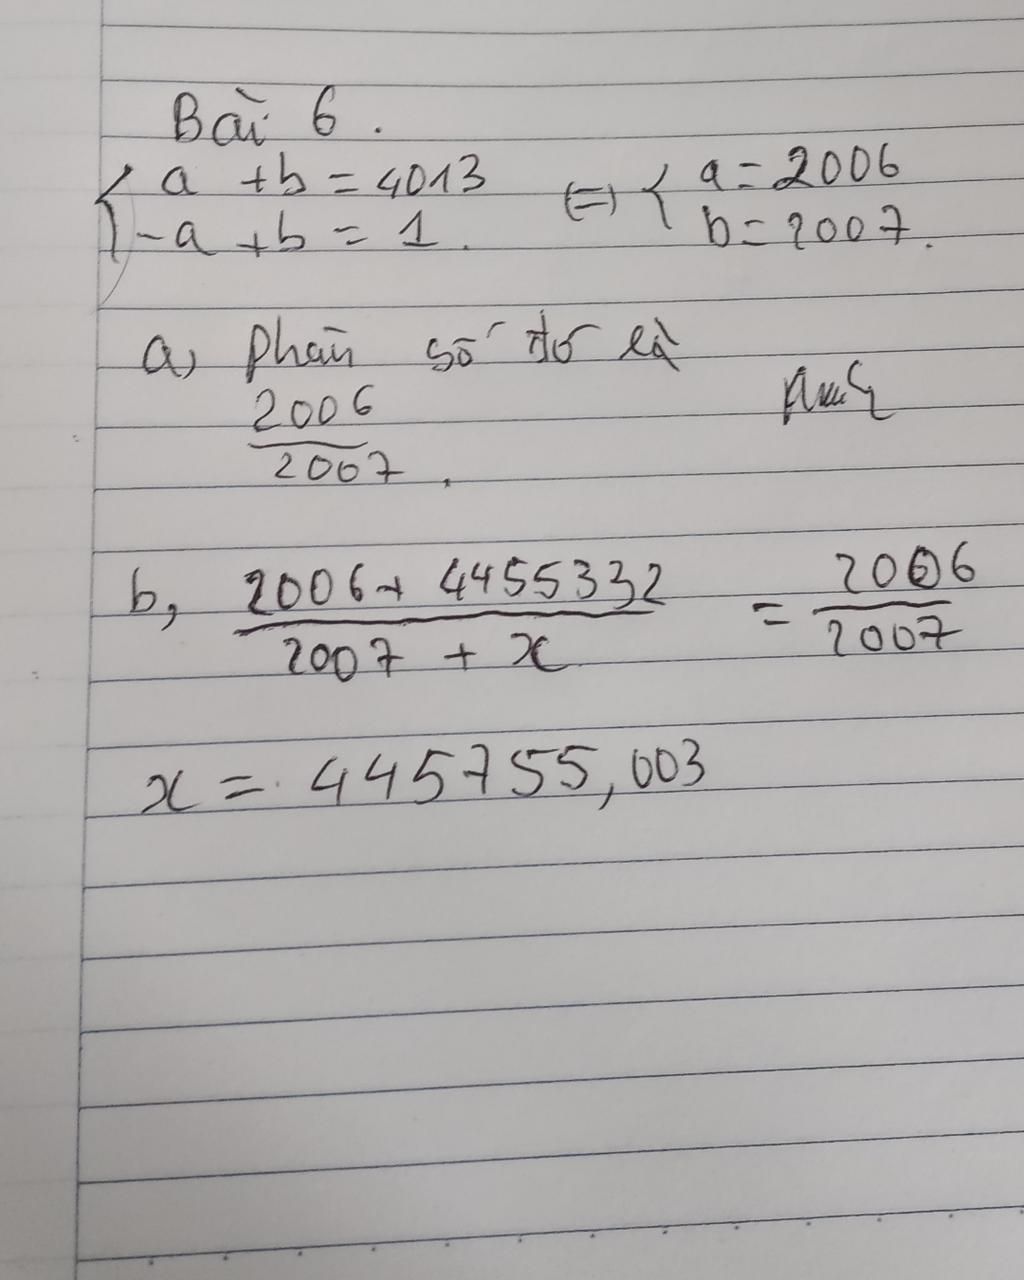 Bài 6.
{ a + b = 4013 (=) { a = 2006
-a + b = 1. b = 2007.
a, phân số đó là
2006
2007.
b, 2006 + 4455332 = 2006
2007 + x 2007
x = 445755,003